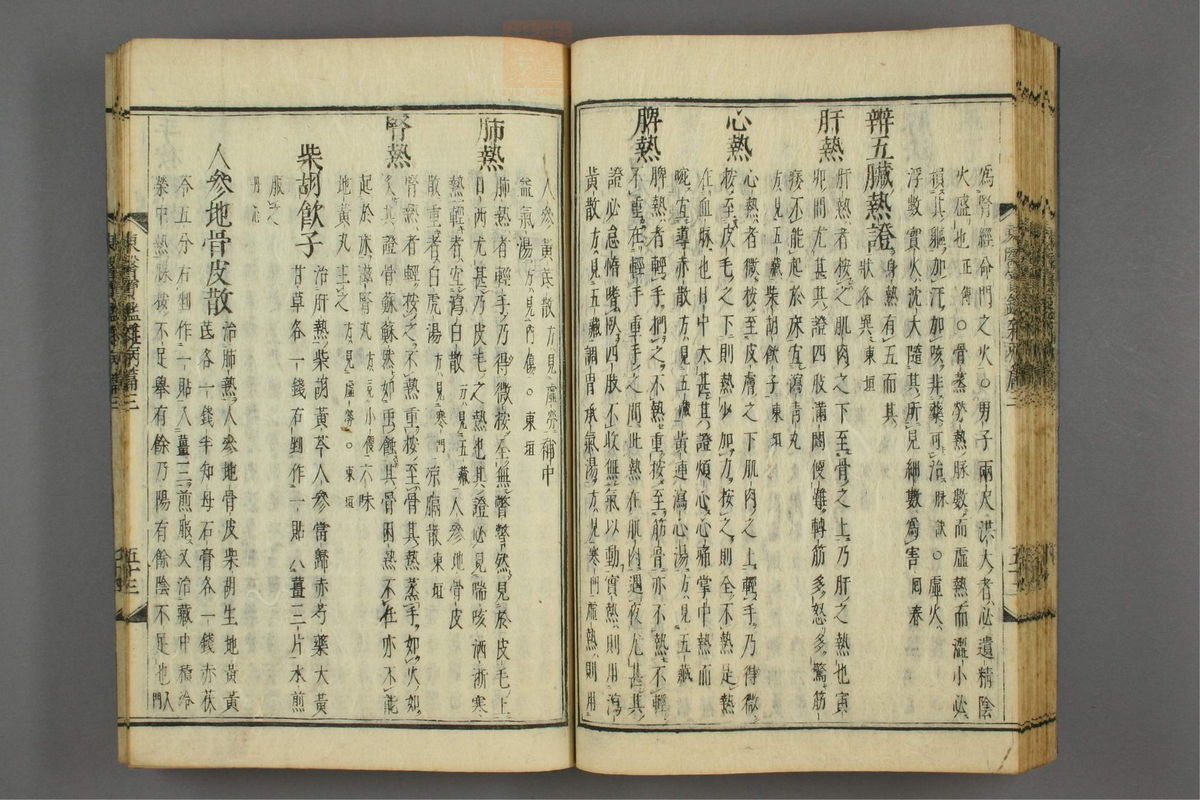 爲腎經命門之火○男子兩尺洪大者必遺精陰
火盛也正傳○骨蒸勞熱脉數而虛熱而濇小必
損其軀加汗加咳非藥可治脉訣○虛火
浮數實火沈大隨其所見細數爲害回春
辨五臟熱證
身熱有五而其
狀各異東垣
肝熱
肝熱者按之肌肉之下至骨之上乃肝之熱也寅
卯間尤甚其證四肢滿悶便難轉筋多怒多驚筋
痿不能起於床宜瀉靑丸
方見五臟柴胡飮子東垣
心熱
心熱者微按至皮膚之下肌肉之上輕手乃得微
按至皮毛之下則熱少加力按之則全不熱是熱
在血脉也日中大甚其證煩心心痛掌中熱而
啘宜導赤散方見五臟黃連瀉心湯方見五臟
脾熱
脾熱者輕手捫之不熱重按至筋骨亦不熱不輕
不重在輕手重手之間此熱在肌肉遇夜尤甚其
證必怠惰嗜臥四肢不收無氣以動實熱則用瀉
黃散方見五臟調胃承氣湯方見寒門虛熱則用
人參黃芪散方見虛勞補中
益氣湯方見內傷○東垣
肺熱
肺熱者輕手乃得微按全無瞥瞥然見於皮毛上
日西尤甚乃皮毛之熱也其證必見喘咳洒淅寒
熱輕者宜瀉白散方見五臟人參地骨皮
散重者白虎湯方見寒門涼膈散東垣
腎熱
腎熱者輕按之不熱重按至骨其熱蒸手如火如
炙其證骨蘇蘇然如虫蝕其骨困熱不任亦不能
起於床滋腎丸方見小便六味
地黃丸主之方見虛勞○東垣
柴胡飮子
治肝熱柴胡黃芩人參當歸赤芍藥大黃
甘草各一錢右剉作一貼入薑三片水煎
服之
人參地骨皮散
治肺熱人參地骨皮柴胡生地黃黃
芪各一錢半知母石膏各一錢赤茯
苓五分右剉作一貼入薑三煎服又治藏中積冷
榮中熱脉按不足擧有餘乃陽有餘陰不足也入門
東醫寶鑑雜病篇三
五十三